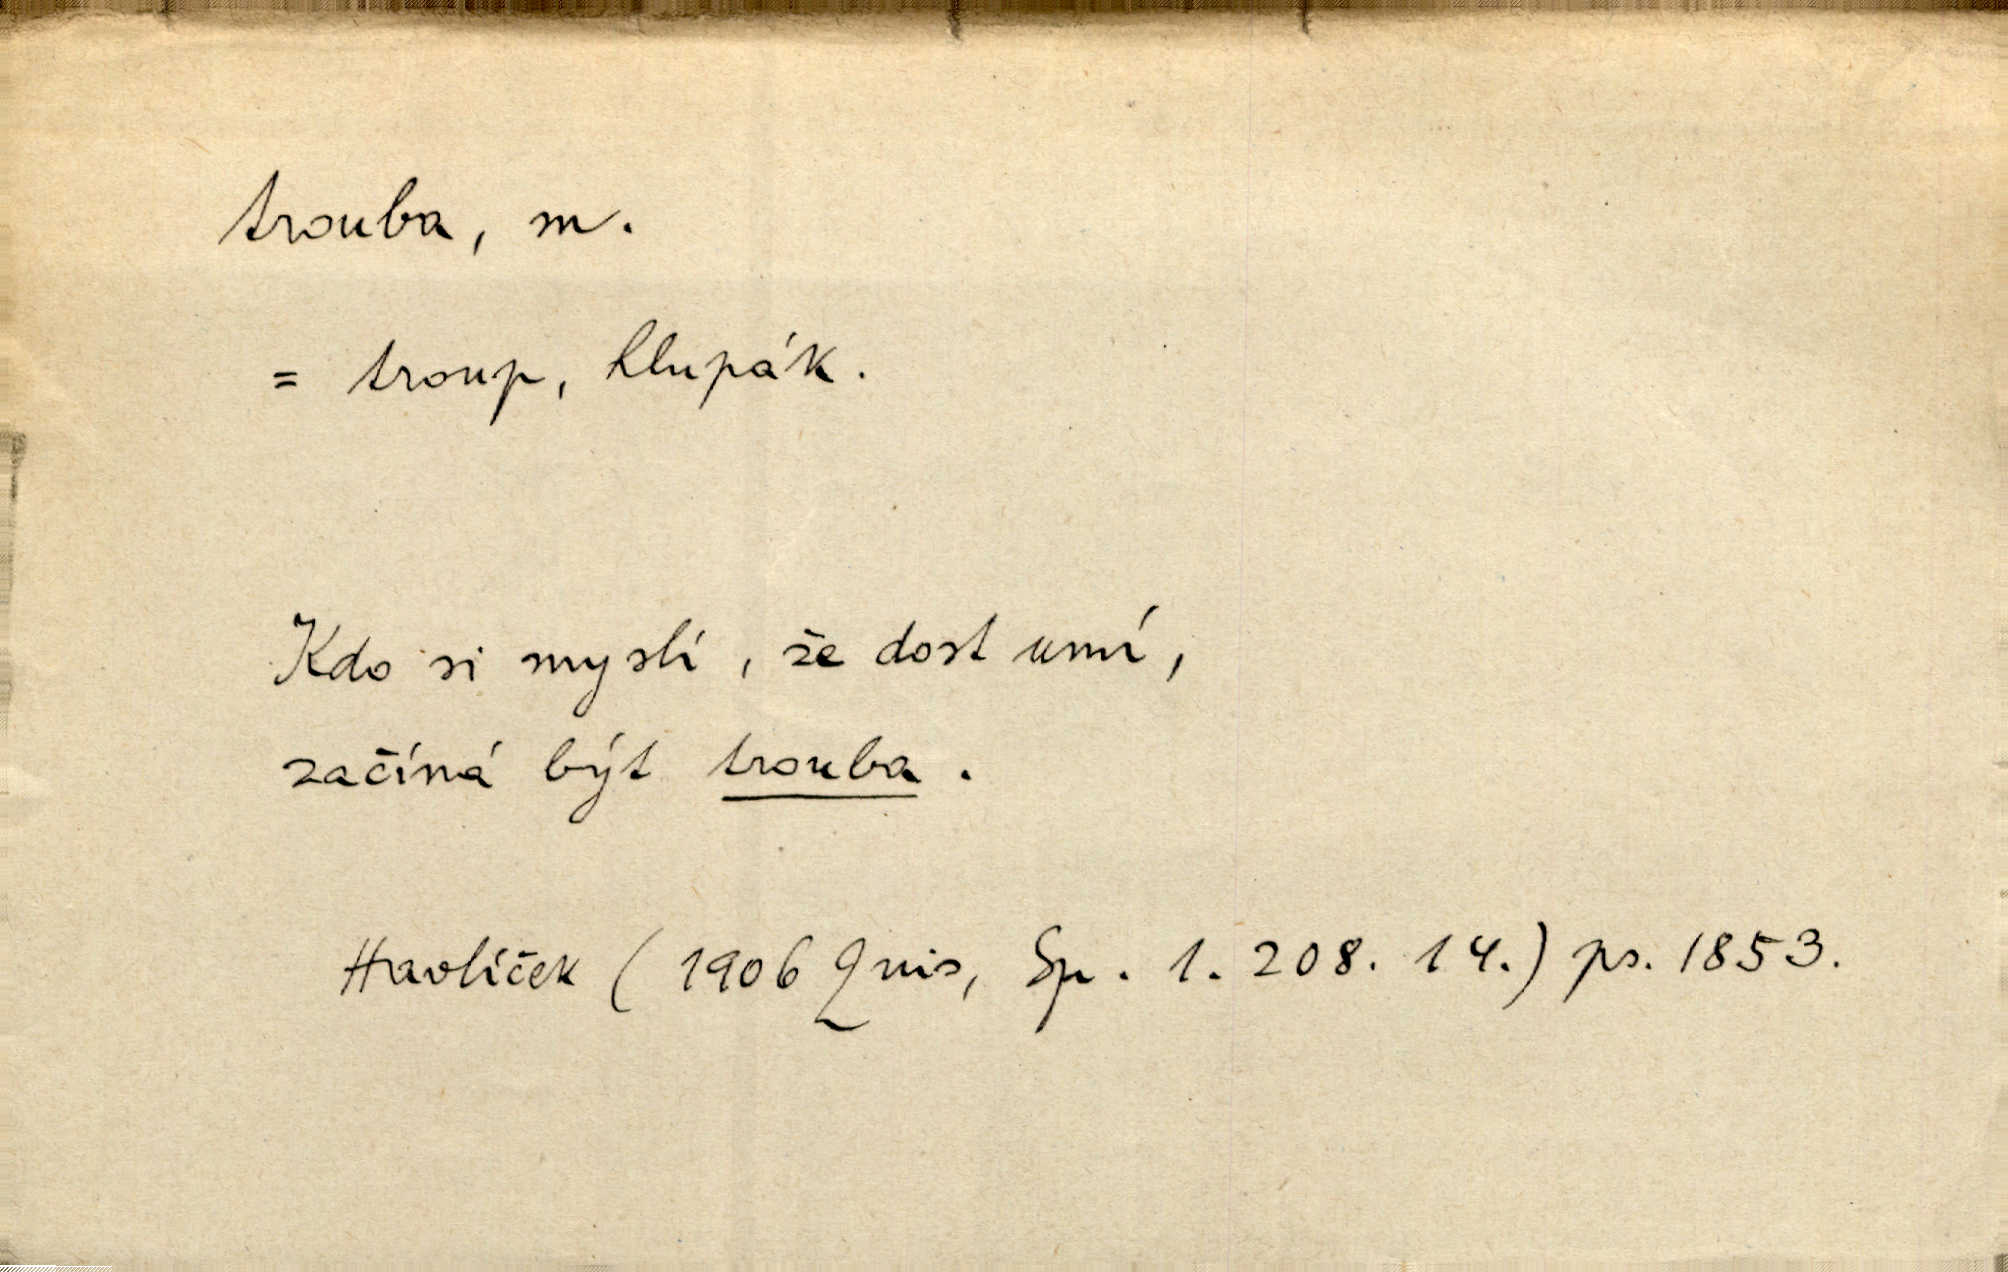 trouba, m.
= troup, hlupák.
Kdo si myslí, že dost umí,
začíná být trouba.
Havlíček (1906 Quis, Sp. 1. 208. 14.) ps. 1853.